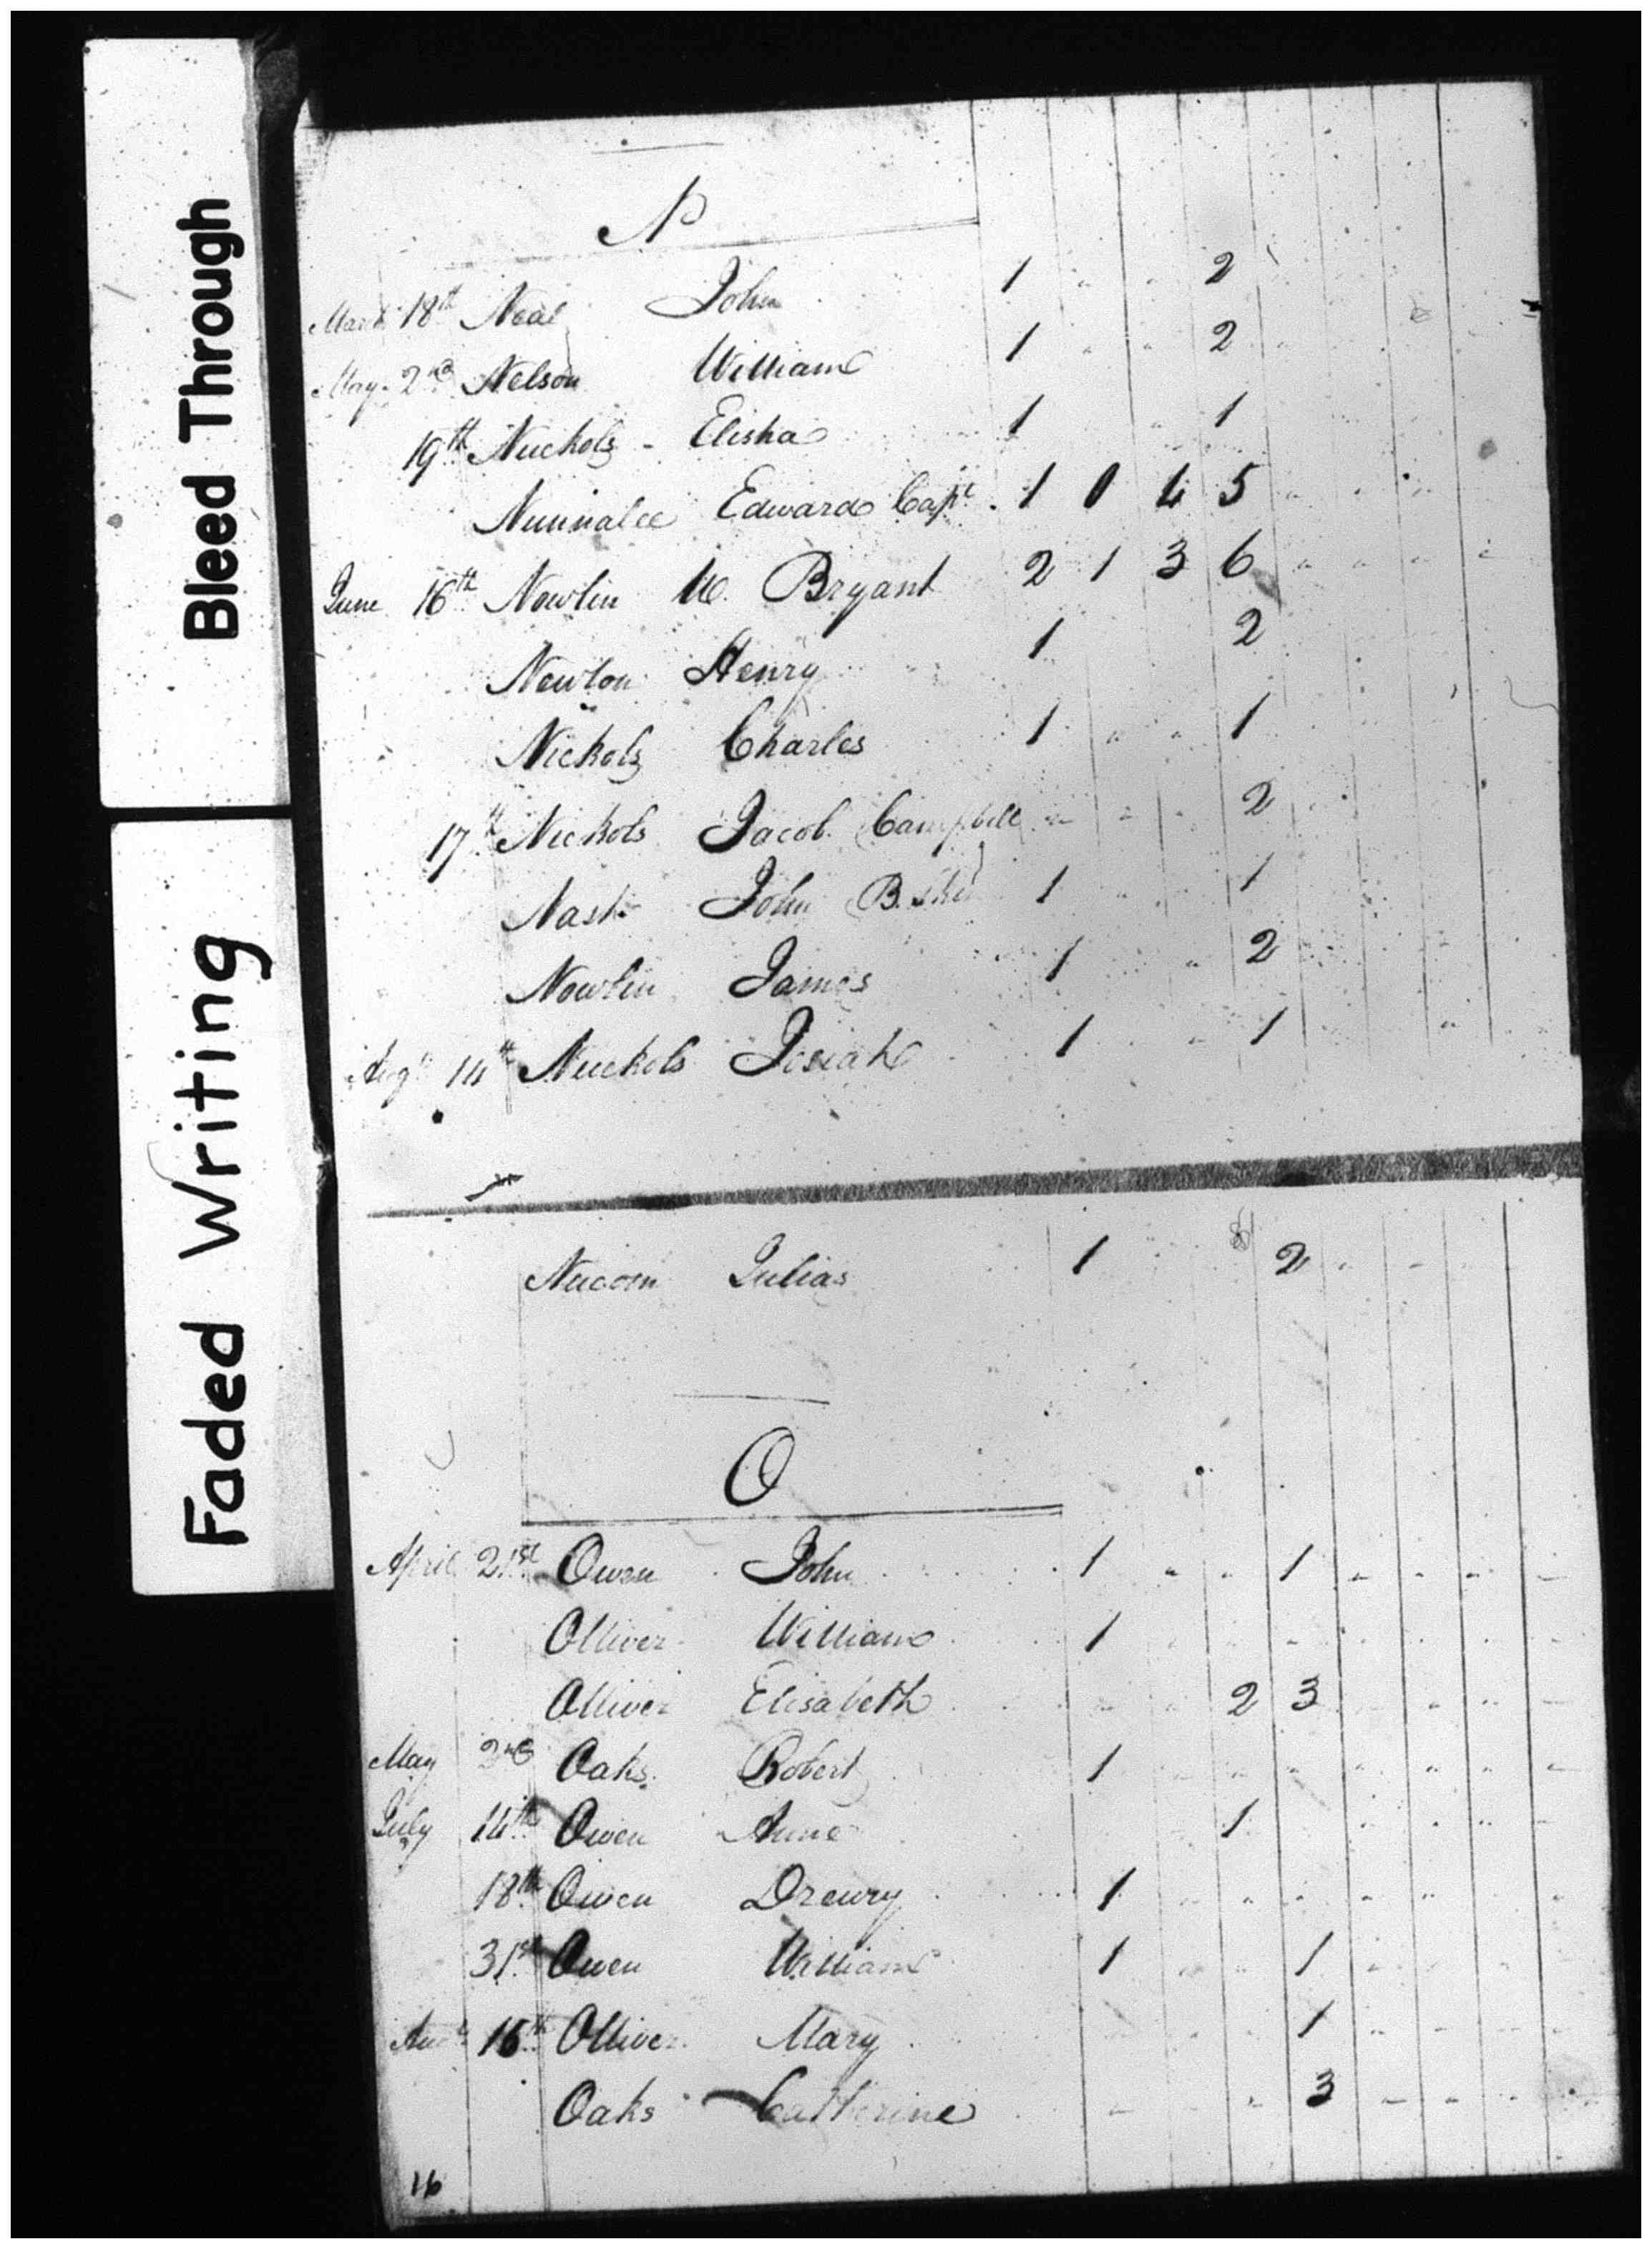 Bleed Through
Faded Writing
N
March 18th Neal John 1 " " 2
May 2nd Nelson William 1 " " 2
19th Nuckols - Elisha 1 " 1
Nunnalee Edward Capt. 1 0 4 5
June 16th Nowlin W. Bryant 2 1 3 6
Newton Henry 1 2
Nickols Charles 1 " " 1
17th Nickols Jacob Campbell " " " 2
Nash John B. 1 " " 1
Nowlin James 1 " 2
Augt 14th Nuckols Josiah 1 " 1
Nucom Julias 1 2
O
April 21st Owen John 1 " " 1
Olliver William 1
Olliver Elisabeth 2 3
May 2nd Oaks Robert 1
July 14th Owen Anne 1
18th Owen Drewry 1
31st Owen William 1 " " 1
16th Olliver Mary 1
Oaks Catherine 3
16